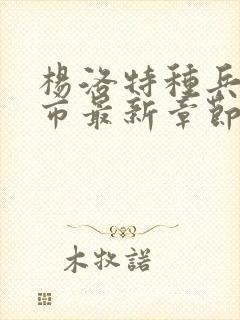 楊洛特種兵
市最新章節
木牧諾